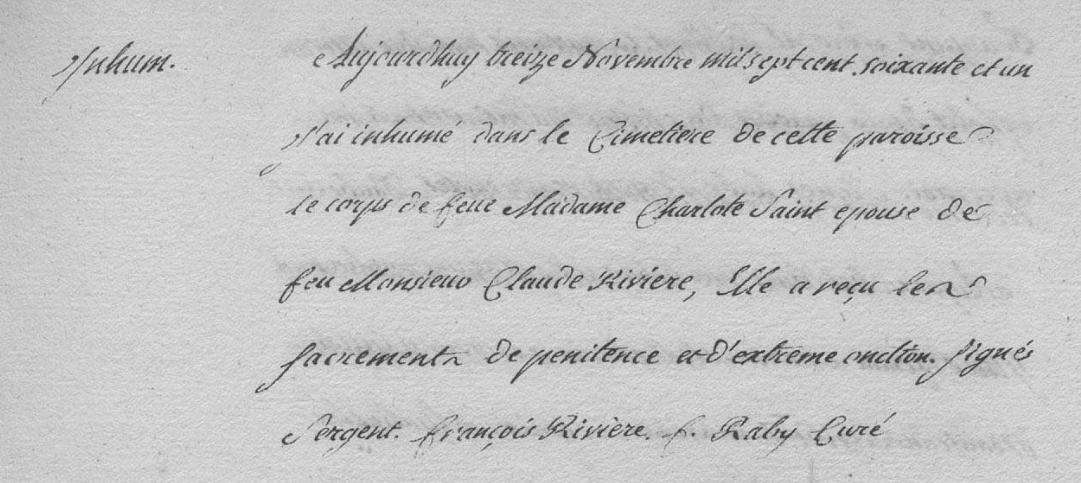 Inhum.
Aujourdhuy treize Novembre mil sept cent soixante et un
j'ai inhumé dans le Cimetiere de cette paroisse
le corps de feue Madame Charlote Saint epouse de
feu Monsieur Claude Riviere, Elle a reçu les
sacrements de penitence et d'extreme onction. signés
Sergent. françois Riviere. f. Raby Curé